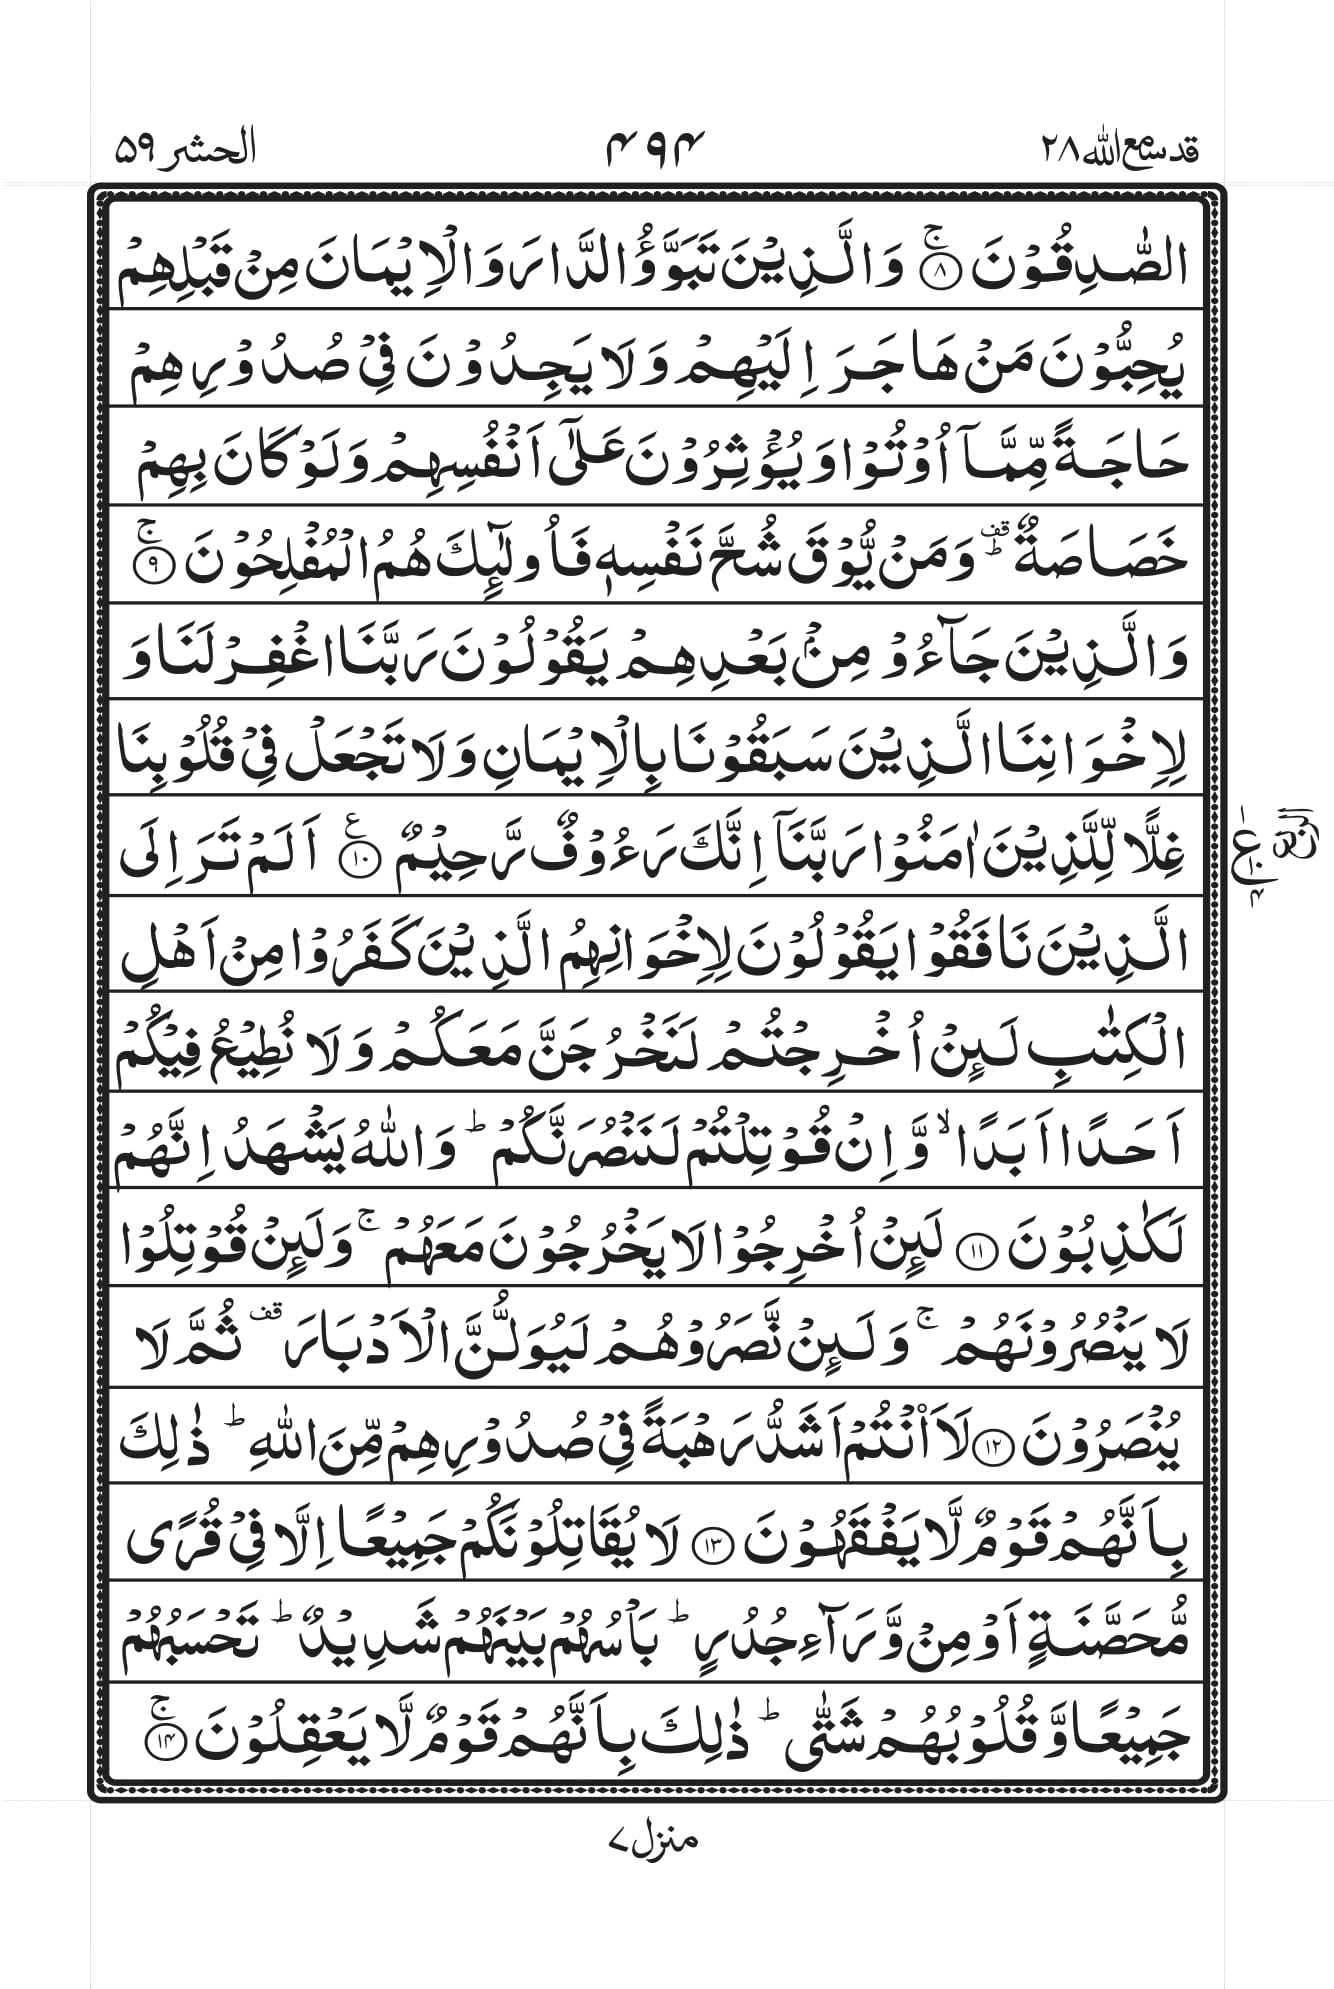 قد سمع الله ۲۸
۴۹۴
الحشر ۵۹
الصّٰدِقُوۡنَ ۚ‏﴿۸﴾ وَالَّذِيۡنَ تَبَوَّؤُ الدَّارَ وَالۡاِيۡمَانَ مِنۡ قَبۡلِهِمۡ
يُحِبُّوۡنَ مَنۡ هَاجَرَ اِلَيۡهِمۡ وَلَا يَجِدُوۡنَ فِىۡ صُدُوۡرِهِمۡ
حَاجَةً مِّمَّاۤ اُوۡتُوۡا وَيُـؤۡثِرُوۡنَ عَلٰٓى اَنۡفُسِهِمۡ وَلَوۡ كَانَ بِهِمۡ
خَصَاصَةٌ ؕقف وَمَنۡ يُّوۡقَ شُحَّ نَـفۡسِهٖ فَاُولٰٓئِكَ هُمُ الۡمُفۡلِحُوۡنَ ۚ‏﴿۹﴾
وَالَّذِيۡنَ جَآءُوۡ مِنۡۢ بَعۡدِهِمۡ يَقُوۡلُوۡنَ رَبَّنَا اغۡفِرۡ لَـنَا وَ
لِاِخۡوَانِنَا الَّذِيۡنَ سَبَقُوۡنَا بِالۡاِيۡمَانِ وَلَا تَجۡعَلۡ فِىۡ قُلُوۡبِنَا
غِلًّا لِّلَّذِيۡنَ اٰمَنُوۡا رَبَّنَاۤ اِنَّكَ رَءُوۡفٌ رَّحِيۡمٌ ‏﴿۱۰﴾ع اَلَمۡ تَرَ اِلَى
الَّذِيۡنَ نَافَقُوۡا يَقُوۡلُوۡنَ لِاِخۡوَانِهِمُ الَّذِيۡنَ كَفَرُوۡا مِنۡ اَهۡلِ
الۡكِتٰبِ لَـئِنۡ اُخۡرِجۡتُمۡ لَنَخۡرُجَنَّ مَعَكُمۡ وَلَا نُطِيۡعُ فِيۡكُمۡ
اَحَدًا اَبَدًا ۙ وَّاِنۡ قُوۡتِلۡتُمۡ لَـنَنۡصُرَنَّكُمۡ ؕ وَاللّٰهُ يَشۡهَدُ اِنَّهُمۡ
لَكٰذِبُوۡنَ ‏﴿۱۱﴾ لَـئِنۡ اُخۡرِجُوۡا لَا يَخۡرُجُوۡنَ مَعَهُمۡ ۚ وَلَـئِنۡ قُوۡتِلُوۡا
لَا يَنۡصُرُوۡنَهُمۡ ۚ وَلَـئِنۡ نَّصَرُوۡهُمۡ لَيُوَلُّنَّ الۡاَدۡبَارَ قف ثُمَّ لَا
يُنۡصَرُوۡنَ ‏﴿۱۲﴾ لَا۟اَنۡتُمۡ اَشَدُّ رَهۡبَةً فِىۡ صُدُوۡرِهِمۡ مِّنَ اللّٰهِ ؕ ذٰلِكَ
بِاَنَّهُمۡ قَوۡمٌ لَّا يَفۡقَهُوۡنَ ‏﴿۱۳﴾ لَا يُقَاتِلُوۡنَكُمۡ جَمِيۡعًا اِلَّا فِىۡ قُرًى
مُّحَصَّنَةٍ اَوۡ مِنۡ وَّرَآءِ جُدُرٍ ؕ بَاۡسُهُمۡ بَيۡنَهُمۡ شَدِيۡدٌ ؕ تَحۡسَبُهُمۡ
جَمِيۡعًا وَّقُلُوۡبُهُمۡ شَتّٰى ؕ ذٰلِكَ بِاَنَّهُمۡ قَوۡمٌ لَّا يَعۡقِلُوۡنَ ۚ‏﴿۱۴﴾
منزل ۷